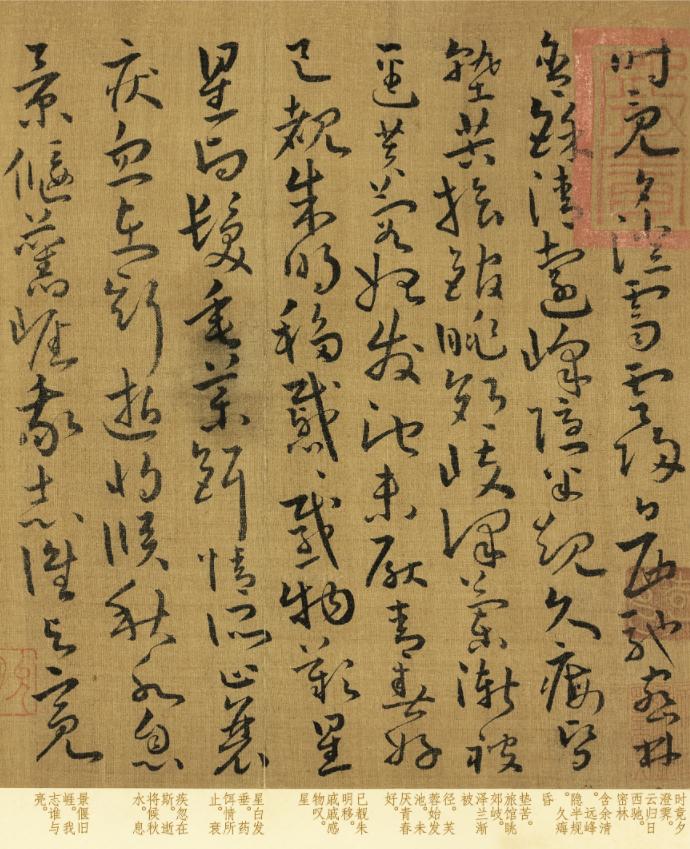 時竟夕澄霽雲歸日西馳密林
含餘清遠峰隱半規久痗昏
墊苦旅館眺郊岐澤蘭漸被
逕芙蓉始發池未厭青春好
已覯朱明移慼慼感物歎星
星白髮垂藥餌情所止衰
疾忽在斯逝將候秋水息
景偃舊崕我志誰與亮
时竟夕
澄霁。
云归日
西驰。
密林
含余清
。远峰
隐半规
。久痗
昏
垫苦。
旅馆眺
郊岐。
泽兰渐
被
径。芙
蓉始发
池。未
厌青春
好。
已觏朱
明移。
戚戚感
物叹。
星
星白发
垂。药
饵情所
止。衰
疾忽在
斯。逝
将候秋
水。息
景偃旧
崕。我
志谁与
亮。